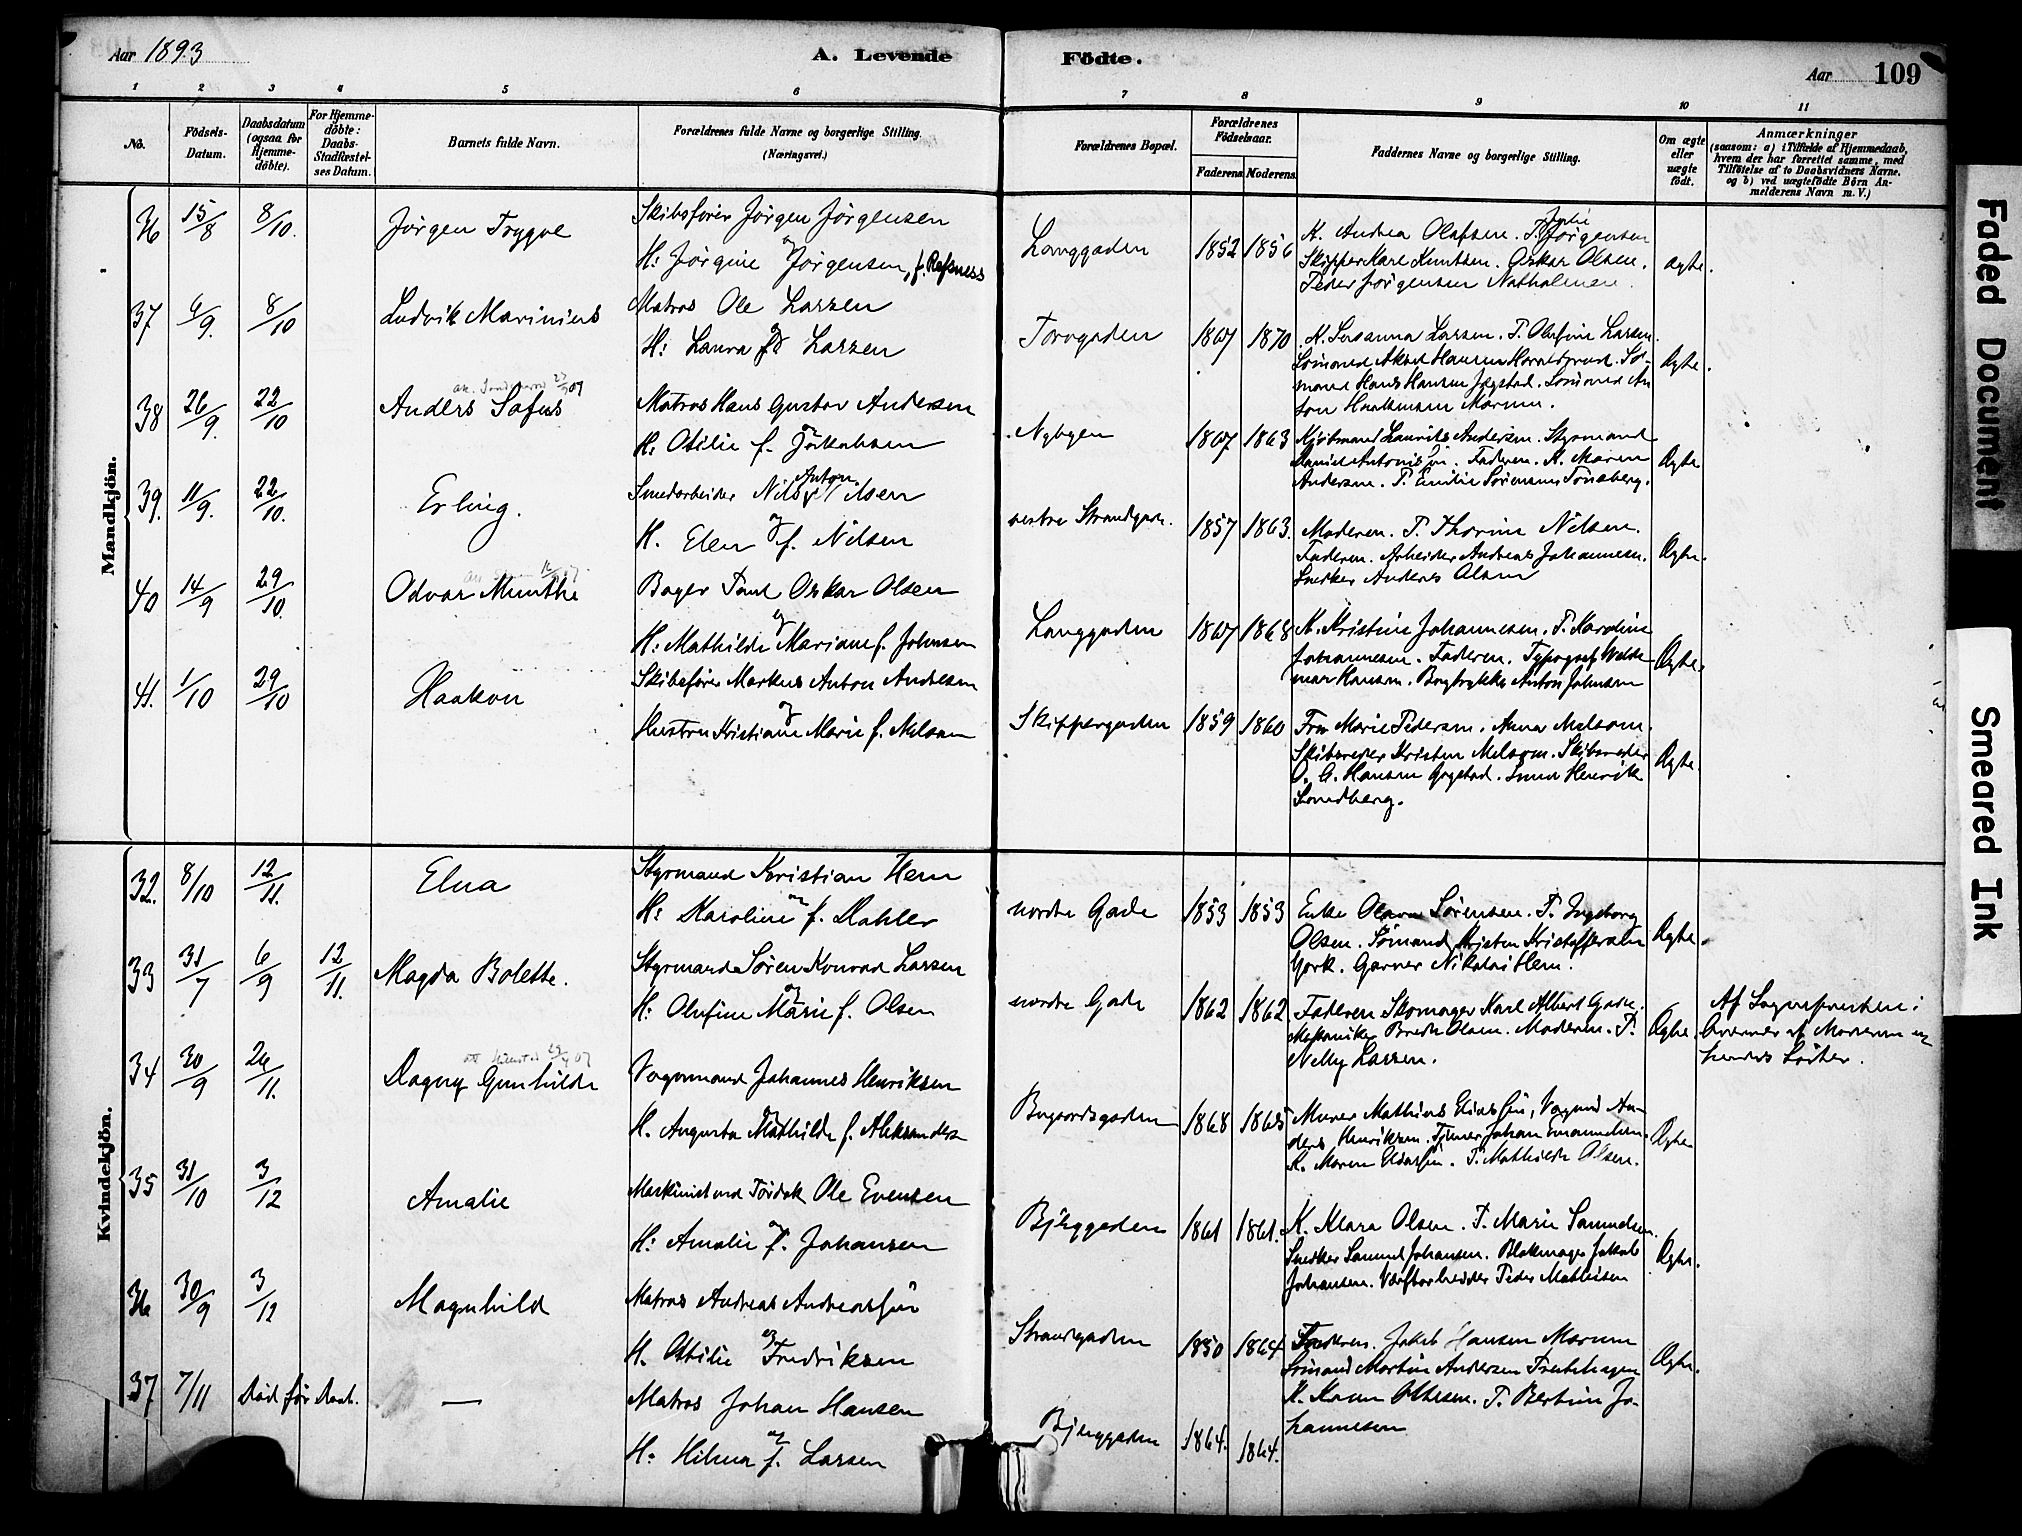 Aar 1893
A. Levende Födte.
Aar 109
1 2 3 4 5 6 7 8 9 10 11
No.
Födsels-Datum.
Daabsdatum (ogsaa for Hjemme-döbte).
For Hjemme-döbte: Daabs-Stadfæstel-ses Datum.
Barnets fulde Navn.
Forældrenes fulde Navne og borgerlige Stilling.
(Næringsvei.)
Forældrenes Bopæl.
Forældrenes Födselsaar.
Faderens Moderens
Faddernes Navne og borgerlige Stilling.
Om ægte eller uægte födt.
Anmærkninger
(saasom: a) i Tilfælde af Hjemmedaab, hvem der har forrettet samme, med Tilföielse af to Daabsvidners Navne, og b) ved uægtefödte Börn An-melderens Navn m. V.)
Mandkjön.
36 15/8 8/10. Jørgen Trygve
Skibsfører Jørgen Jørgensen
og
H: Jørgine Jørgensen, f. Refsnes
Langgaden 1852 1856
K. Andrea Olafsen. P. Julie Jørgensen
Skipper Karl Knutsen. Oskar Olsen.
Peder Jørgensen Nathalinsen.
Ægte.
37 6/9. 8/10 Ludvik Marinius
Matros Ole Larsen
og
H: Laura f. Larsen
Torvgaden 1867 1870
K. Susanna Larsen. P. Olufine Larsen.
Sømand Aksel Hansen Sø-
mand Hans Hansen Jægstad. Sømand An
ton
Ægte.
38 26/9. 22/10 Anders Sofus
Matros Hans Gustav Andersen
og
H: Otilie f. Jakobsen
Nybyen 1867 1863
Laurits Andersen. Styrmand
Daniel Antonissøn. Faderen. K. Maren
Andersen. P. Emilie Sørensen Tønsberg.
Ægte
39. 11/9. 22/10. Erling.
Smedarbeider Nils Anton Nilsen
og
H. Elen f. Nilsen
vestre Strandgade. 1857 1863.
Moderen. P. Thorine Nilsen.
Faderen. Arbeider Andreas Johannesen.
Snekker Anders Olsen
Ægte.
40 14/9 29/10. Odvar Munthe
Bager Paul Oskar Olsen
og
H: Mathilde Mariane f. Johnsen
Langgaden 1867 1868
K. Kristine Johannesen. P. Karoline
Johannesen. Faderen. Typograf Walde
mar Hansen. Bogtrykker Anton Johnsen
Ægte.
41. 1/10 29/10 Haakon
Skibsfører Markus Anton Andresen
og
Hustru Kristiane Marie f. Melsom
Skippergaden 1859 1860
Fru Marie Pedersen. Anna Melsom.
Skibsreder Kristen Melsom. Skibsreder
O. A. Hansen Gogstad. Henrik
Sundberg.
Ægte.
Kvindekjön.
32. 8/10 12/11. Elna
Styrmand Kristian Hem
og
H: Karoline f. Kahler
nordre Gade 1853 1853
Enke Olava Sørensen. P. Ingeborg
Olsen. Sømand Kristen Kristoffersen
York. Garver Nikolai Hem.
Ægte.
33 31/7 6/9 12/11. Magda Bolette.
Styrmand Søren Konrad Larsen
og
H: Olufine Marie f. Olsen
nordre Gade 1862 1862.
Faderen Skomager Karl Albert Gade.
Mekaniker Brede Olsen. Moderen. P.
Nelly Larsen.
Ægte.
Af Sognepresten i
Overvær af Moderen og
hendes Søster.
34 30/9 26/11. Dagny Gunhilde
Vognmand Johannes Henriksen
og
H. Augusta Mathilde f. Aleksandersen
Bugaardsgaden 1868 1865
Murer Mathias Eliassøn, Vognmd An-
ders Henriksen. Tømmer Johan Emanuelsen.
K. Maren Eliassøn. P. Mathilde Olsen.
Ægte
35 31/10 3/12 Amalie
Maskinist ved Tørdok Ole Evensen
og
H: Amalie f. Johansen
Bjerggaden 1861 1861.
K. Klara Olsen. P. Marie Samuelsen.
Snekker Samuel Johansen. Blokmager Jakob
Johansen. Værftarbeider Peder Mathisen
Ægte.
36 30/9 3/12 Magnhild
Matros Andreas Andreassøn
og
H. Otilie Fredriksen
Strandgaden 1850 1864
Faderen. Jakob Hansen
Sømand Martin Andersen
K. Karen Ottesen. P. Bertine Jo-
hannesen
Ægte.
37 7/11 Død før Daab. —
Matros Johan Hansen
og
H: Hilma f. Larsen
Bjerggaden 1864. 1864.
Faded Document
Smeared Ink